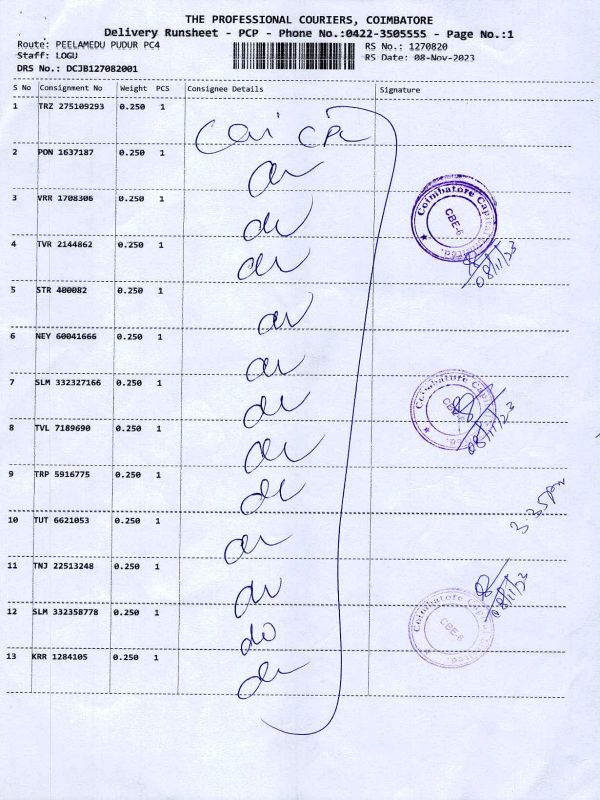 THE PROFESSIONAL COURIERS, COIMBATORE
Delivery Runsheet - PCP - Phone No.:0422-3505555 - Page No.:1
Route: PEELAMEDU PUDUR PC4 RS No.: 1270820
Staff: LOGU RS Date: 08-Nov-2023
DRS No.: DCJB127082001
S No Consignment No Weight PCS Consignee Details Signature
1 TRZ 275109293 0.250 1
2 PON 1637187 0.250 1
3 VRR 1708306 0.250 1
Coimbatore Capital
CBE-6
4 TVR 2144862 0.250 1
08/11/23
5 STR 400082 0.250 1
6 NEY 60041666 0.250 1
7 SLM 332327166 0.250 1
Coimbatore Capital
08/11/23
8 TVL 7189690 0.250 1
9 TRP 5916775 0.250 1
3.35pm
10 TUT 6621053 0.250 1
11 TNJ 22513248 0.250 1
08/11/23
12 SLM 332358778 0.250 1 do
Coimbatore Capital
CBE-6
13 KRR 1284105 0.250 1